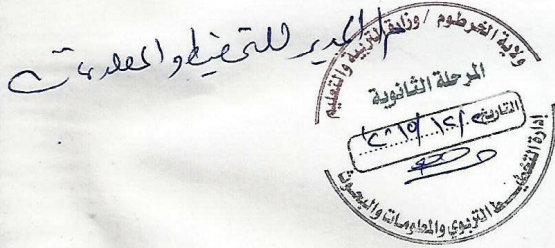 م/ المدير للتخطيط والمعلومات
ولاية الخرطوم / وزارة التربية والتعليم
المرحلة الثانوية
التاريخ
إدارة التخطيط التربوي والمعلومات والبحوث